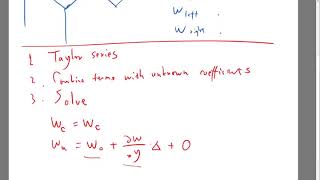 W left
W right
1. Taylor series
2. Combine terms with unknown coefficients
3. Solve
W_c = W_c
W_n = W_o + ∂W/∂y Δ + O